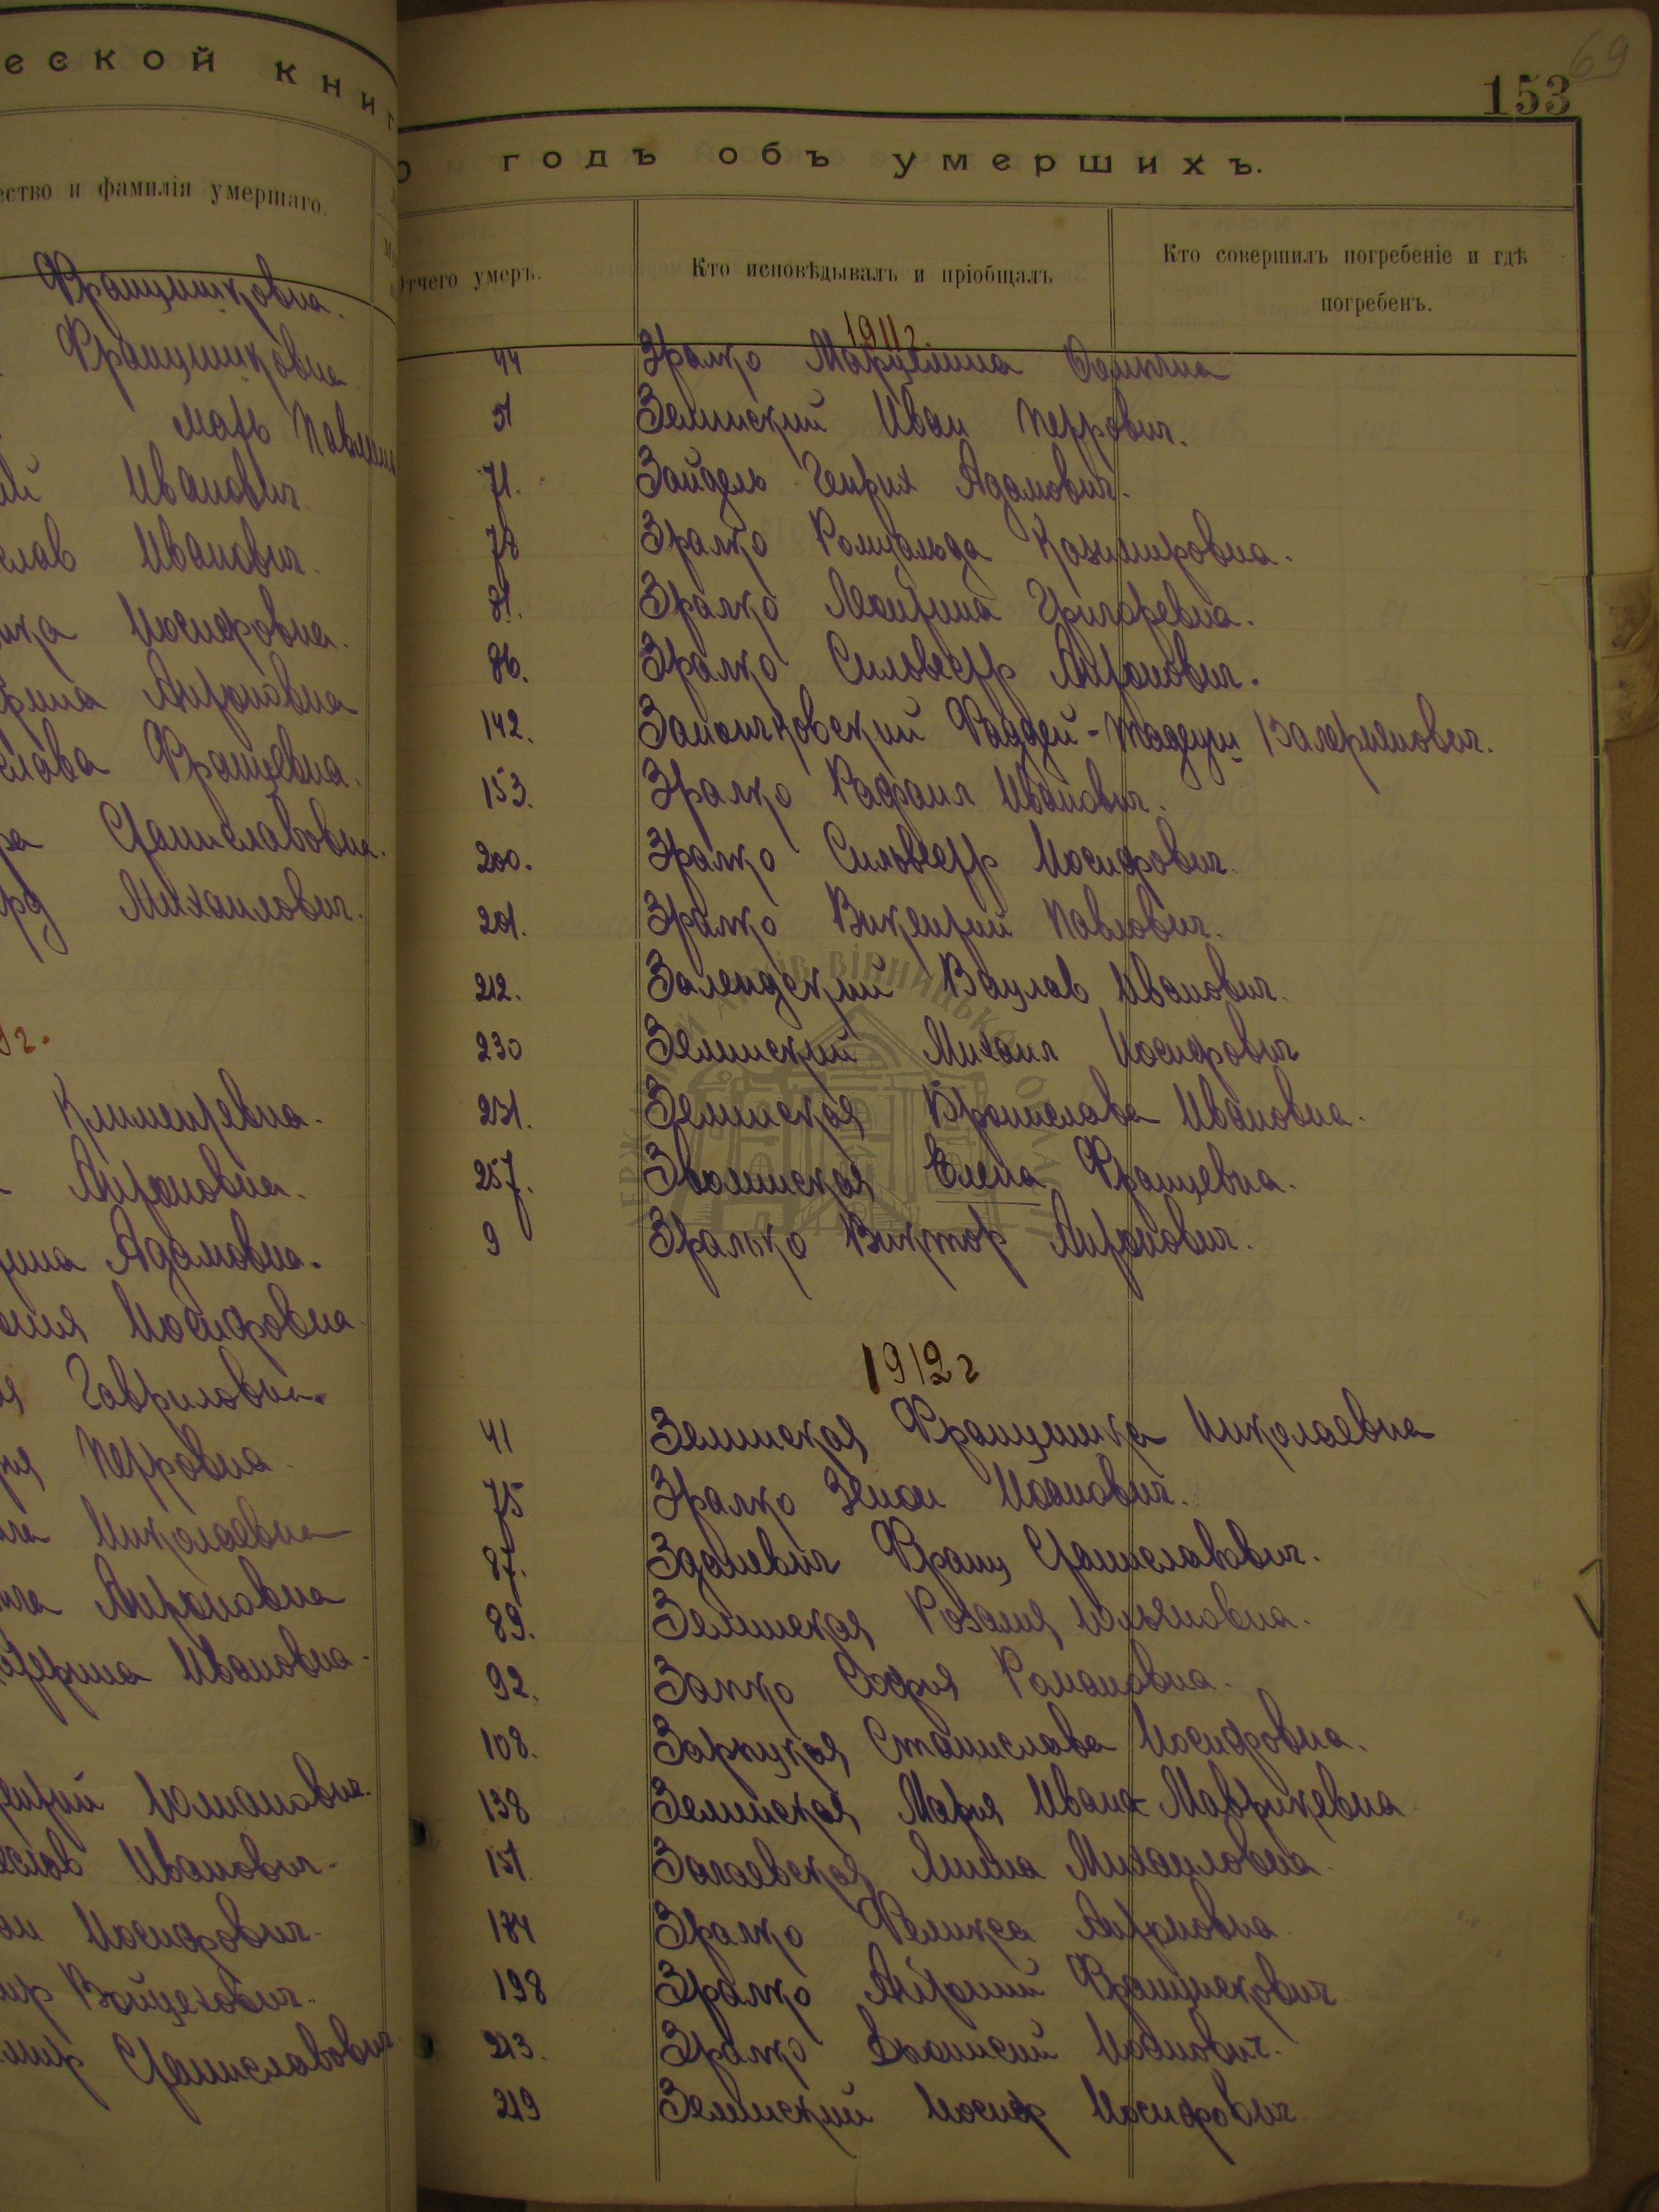 еской книг
ество и фамилія умершаго.
Францишковна.
Францишковна
мать
Иванович.
слав Иванович.
Иосифовна.
Антоновна
слава Францевна.
Станиславовна.
Михаилович.
Климентевна.
Антоновна.
Адамовна.
Иосифовна
Гавриловна.
Петровна.
Николаевна
Антоновна
Ивановна.
Иванович.
Иосифович.
Войцехович.
Станиславович
69
153
годъ объ умершихъ.
Отчего умеръ.
Кто исповѣдывалъ и пріобщалъ
Кто совершилъ погребеніе и гдѣ
погребенъ.
1911 г.
44 Зралко Марцелина
51 Зелинский Иван Петрович.
71. Зайдель Генрих Адамович.
78 Зралко Ромуальда Казимировна.
81. Зралко Леонтина Григоревна.
86. Зралко Сильвестр Антонович.
142. Заиончковский Фаддей-Тадеуш Валерианович.
153. Зралко Рафаил Иванович.
200. Зралко Сильвестр Иосифович.
201. Зралко Викентий Павлович.
212. Залендский Вацлав Иванович.
230 Зелинский Михаил Иосифович
231. Зелинская Бронислава Ивановна.
257. Зволинская Елена Францевна.
9 Зралько Виктор Антонович.
1912 г
41 Зелинская Францишка Николаевна
75 Зралко Зенон Иоанович.
87. Зданевич Франц Станиславович.
89. Зелинская Розалия Юльяновна.
92. Залко София Романовна.
108. Зарицкая Станислава Иосифовна.
138 Зелинская Мария Ивана-Маврикевна
151. Янина Михаиловна
184 Зралко Феликса Антоновна
198 Зралко Антоний Францискович
213. Зралко Дионисий Иоанович.
219 Зелинский Иосиф Иосифович